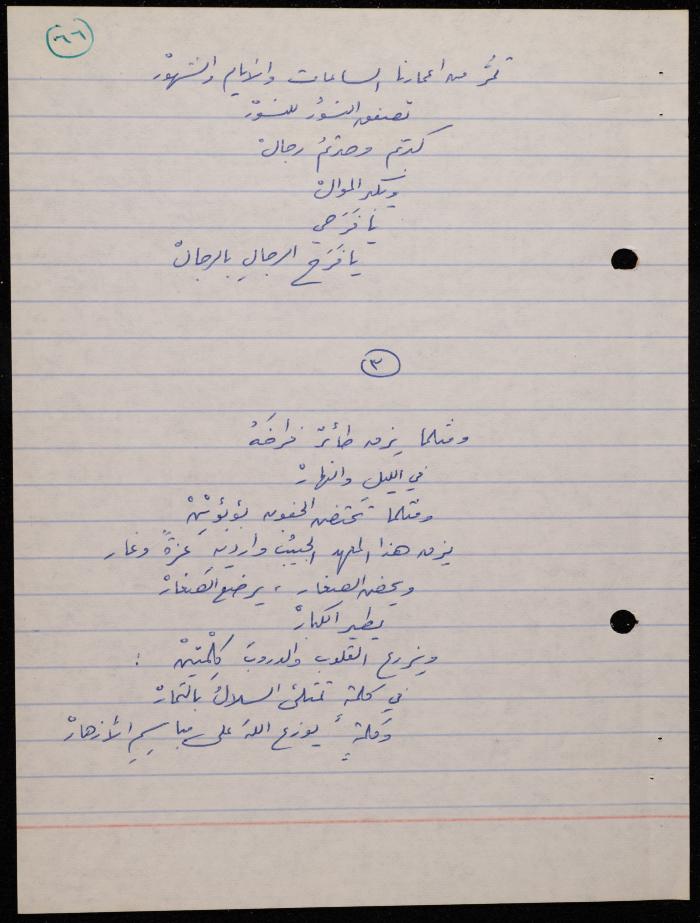 ٦٦
تمرُّ من اعمارنا الساعات والأيام والشهوْر
تصفق النسوُر للنسوْر
كبرتم وصرتمُ رجالْ
ويكبر الموالْ
يا فَرَحي
يا فَرَح الرجالِ بالرجالْ
٣
ومثلما يزق طائرٌ فراخَهُ
في الليلِ والنهارْ
ومثلما تحتضن الجفون بؤبؤيْنْ
يزق هذا المعهد الحبيبُ وارديه عزةً وغار
ويحضن الصغار ، يرضع الصغارْ
يطير الكبارْ
ويزرع القلوب والدروبَ كِلْمتيْنْ :
في كلمة تمتلئ السلالُ بالثمارْ
وكلمةٍ يوزع اللهَ على مباسِمِ الأزهارْ